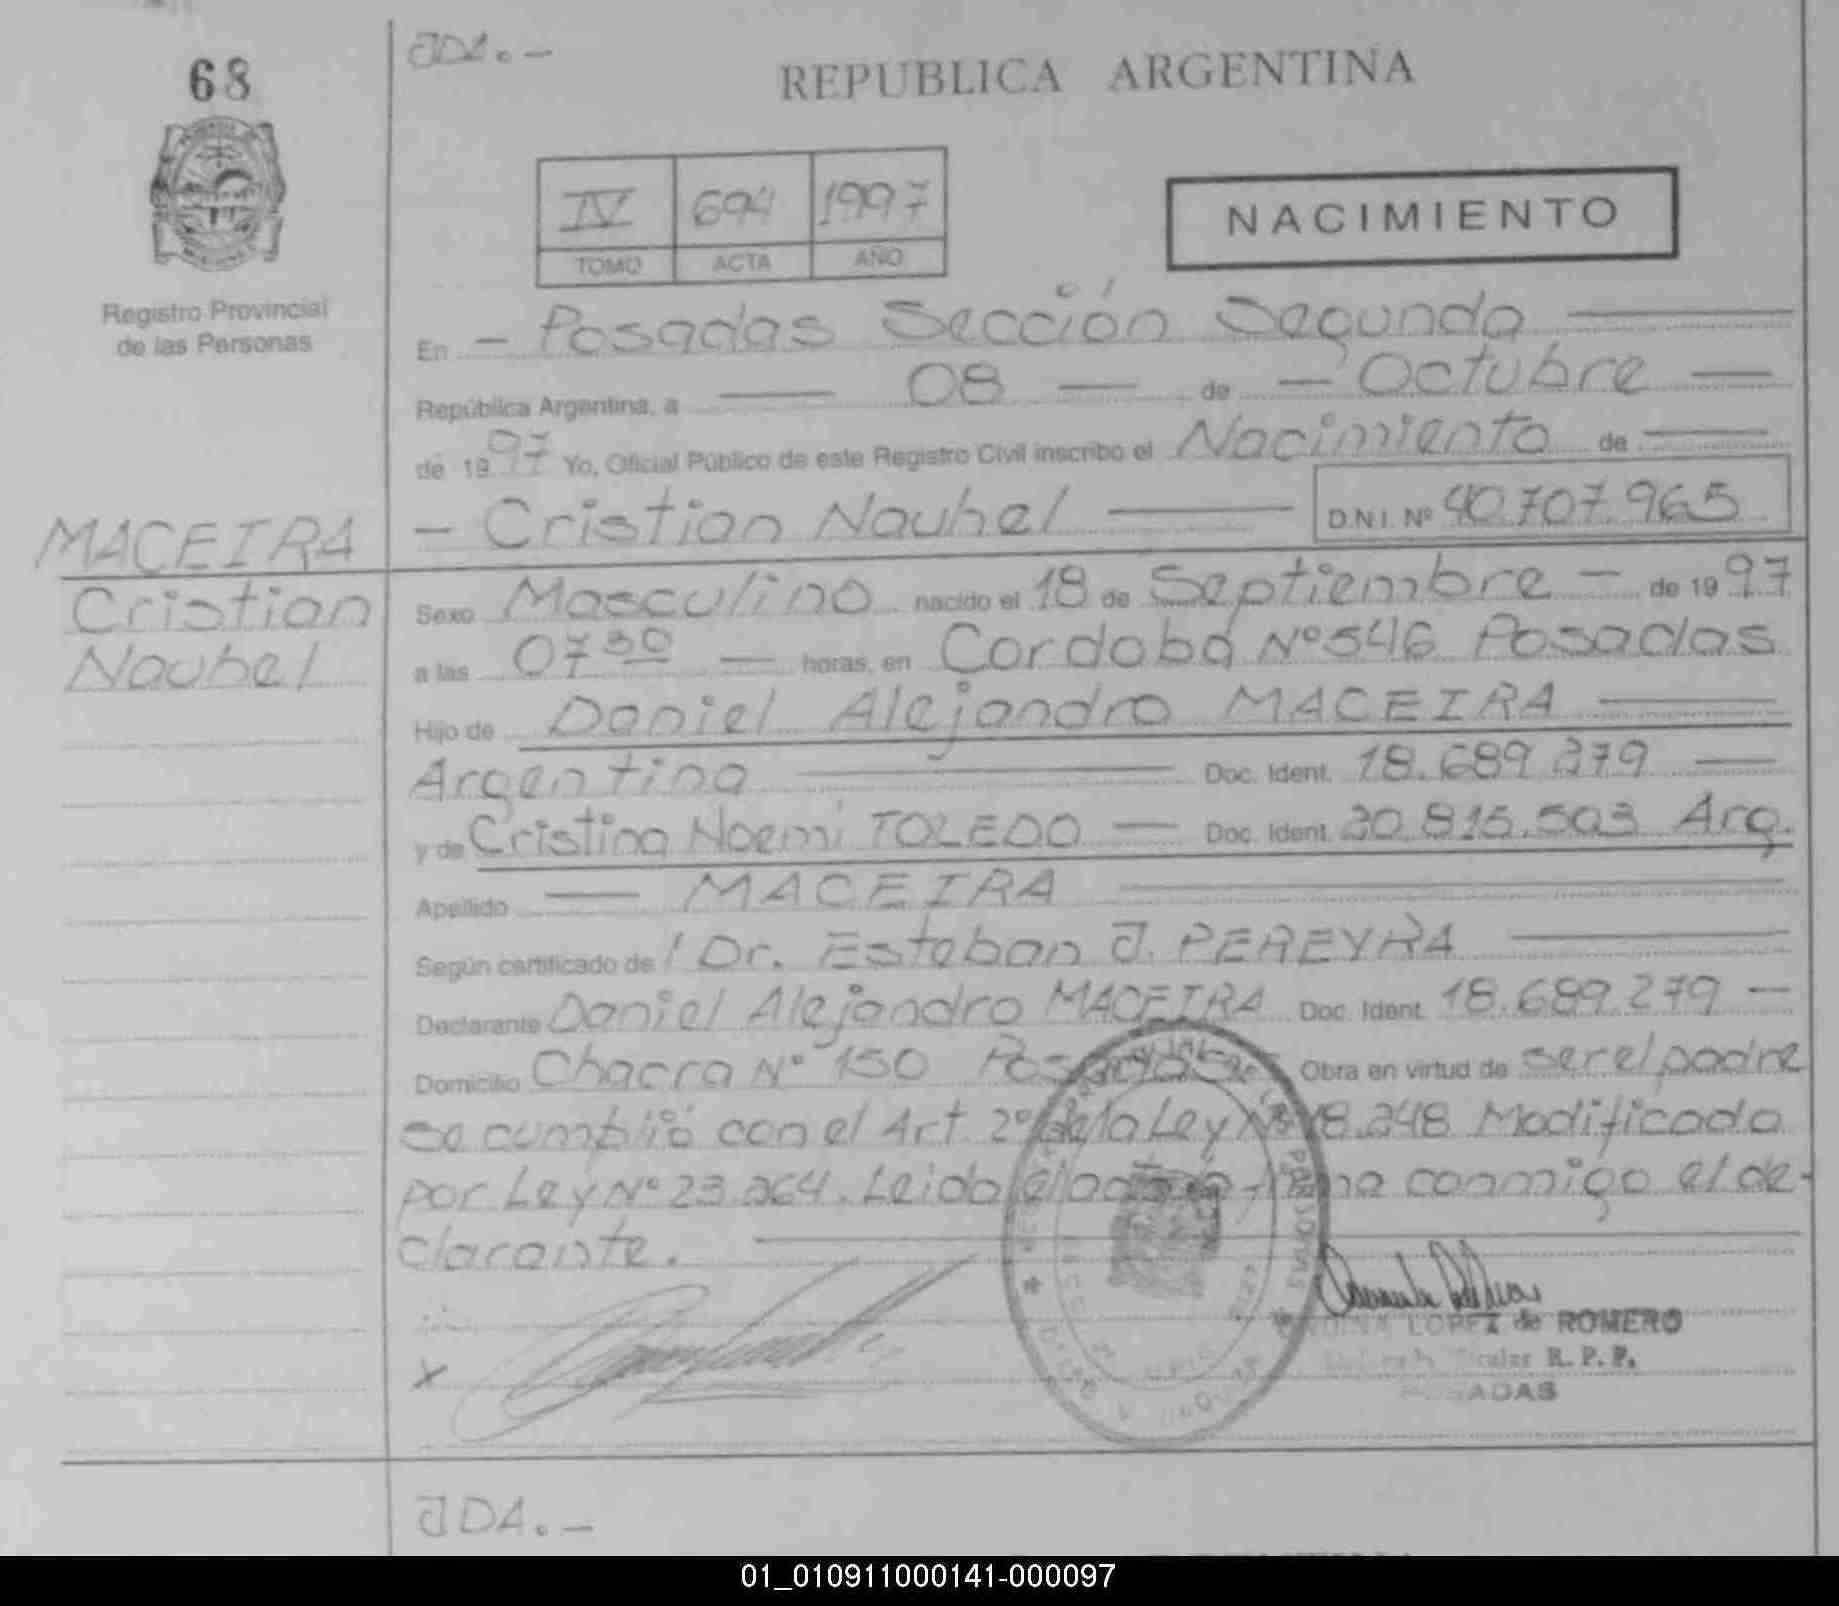 68
JDA.-
REPUBLICA ARGENTINA
IV 694 1997
TOMO ACTA AÑO
NACIMIENTO
Registro Provincial
de las Personas
En - Posadas Sección Segunda
República Argentina, a 08 de Octubre
de 1997 Yo, Oficial Público de este Registro Civil inscribo el Nacimiento de
- Cristian Nauhel D.N.I. Nº 40.707.965
MACEIRA
Cristian
Nauhel
Sexo Masculino nacido el 18 de Septiembre - de 1997
a las 07 30 horas, en Cordoba Nº 546 Posadas
Hijo de Daniel Alejandro MACEIRA
Argentina Doc. Ident. 18.689.279
y de Cristina Noemi TOLEDO Doc. Ident. 20.815.503 Arg.
Apellido MACEIRA
Según certificado de / Dr. Esteban J. PEREYRA
Declarante Daniel Alejandro MACEIRA Doc. Ident. 18.689.279 -
Domicilio Chacra Nº 150 Posadas Obra en virtud de ser el padre
se cumplió con el Art. 2º de la Ley Nº 18.248 Modificada
por Ley Nº 23.264. Leido el acta firma conmigo el de-
clarante.
X
LOPEZ de ROMERO
Titular R. P. P.
POSADAS
PERSONAS
JDA.-
01_010911000141-000097